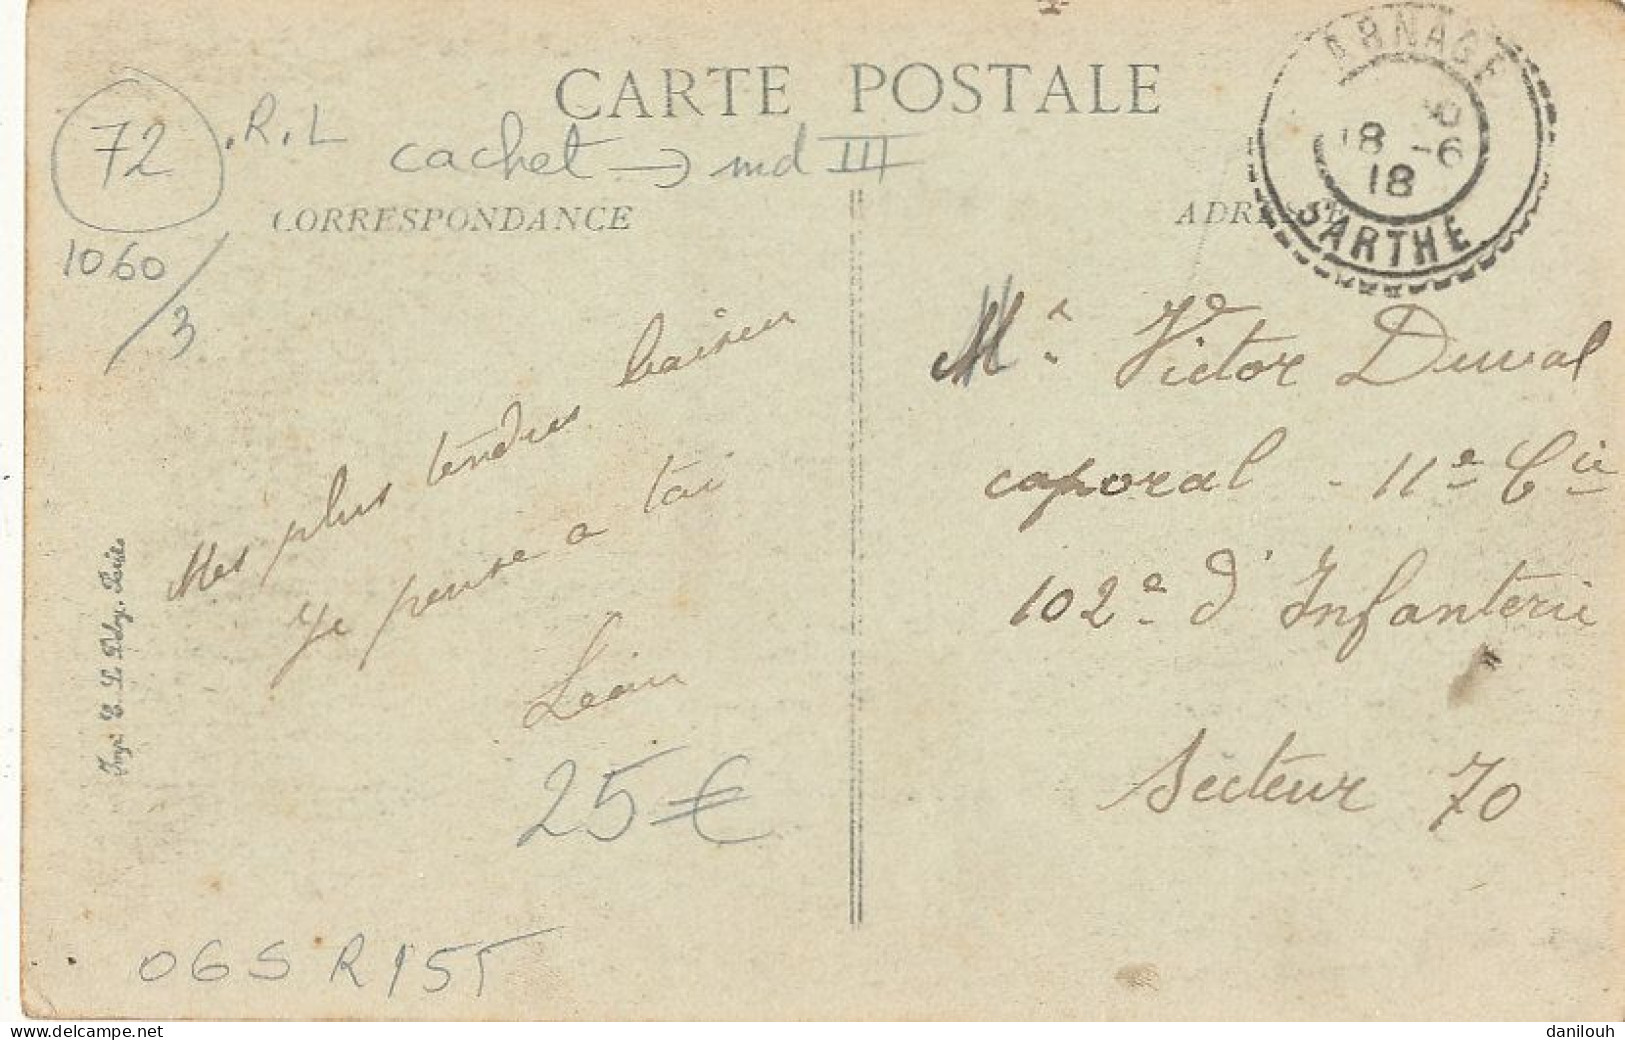 CARTE POSTALE
72
.R.L
cachet → md III
1060/3
CORRESPONDANCE
ADRESSE
ARNAGE
18 -6
18
SARTHE
Mes plus tendres baiser
Je pense a toi
25€
06SR155
Imp. E. Le Deley, Paris
Mr Victor Duval
caporal - 11e Cie
102e d'Infanterie
Secteur 70
www.delcampe.net
danilouh